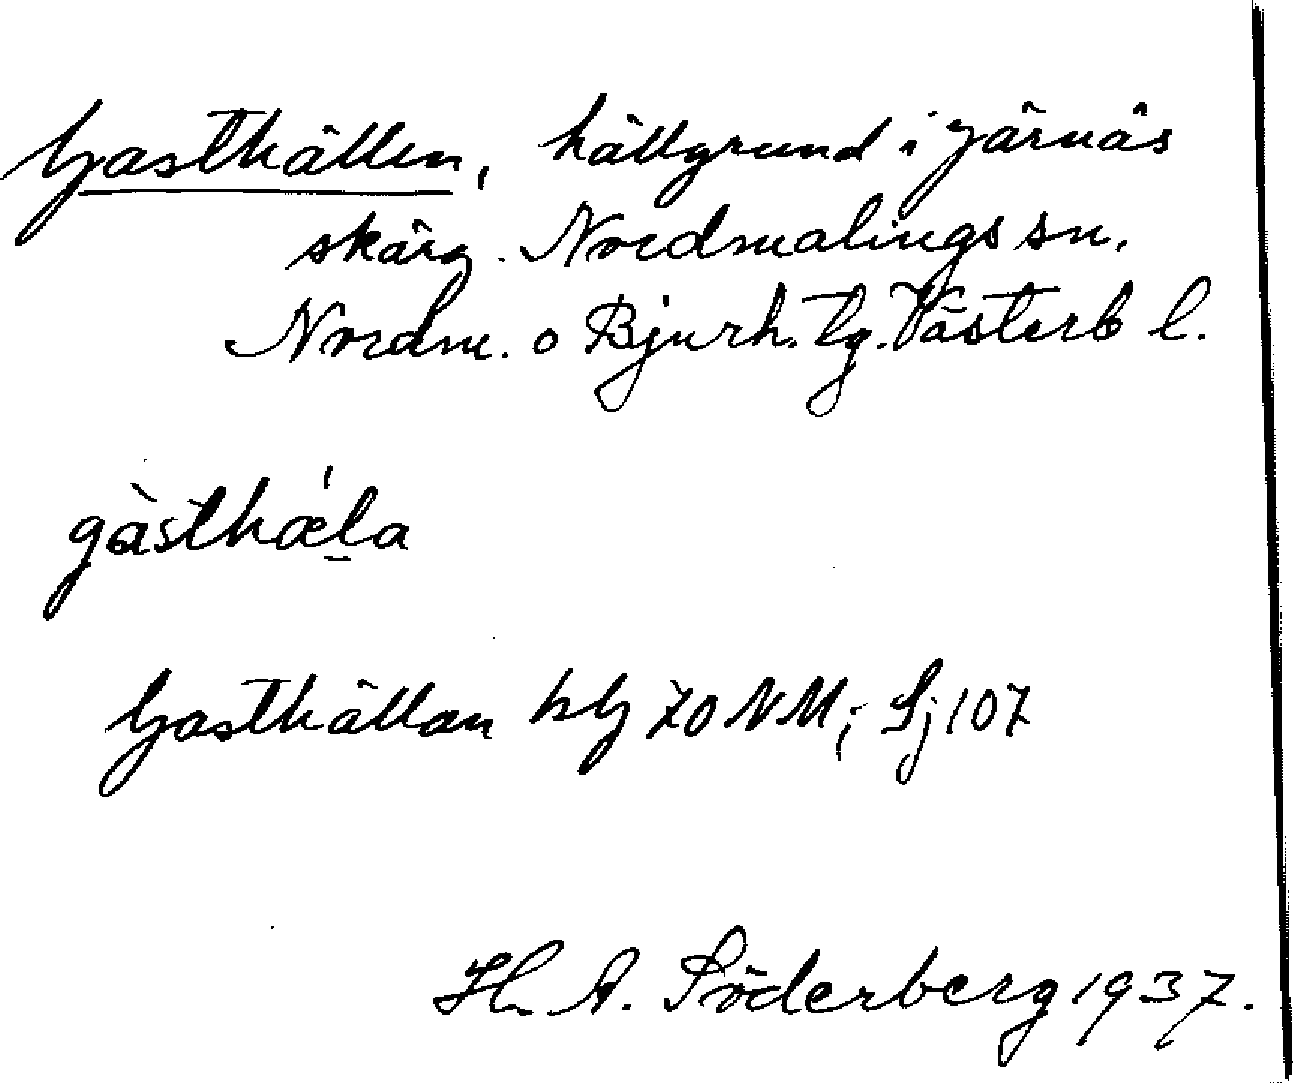 Gasthällen, hällgrund i Järnäs
skärg. Nordmalings sn.
Nordm. o Bjurh. tg. Västerb l.
gàsthæ̀la
Gasthällan blg 70 NM; Sj 107
H. A. Söderberg 1937.